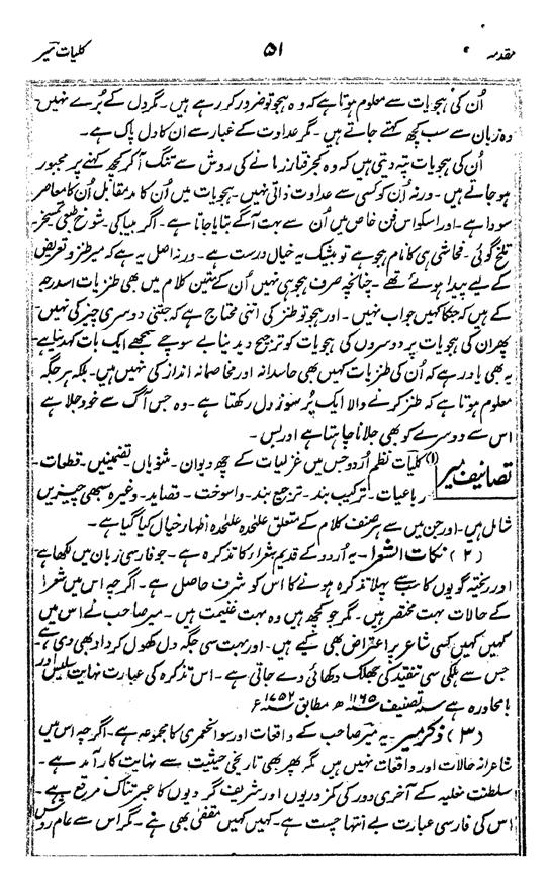 مقدمہ ۵۱ کلیات میر
اُن کی ہجویات سے معلوم ہوتا ہے کہ وہ ہجو تو ضرور کر رہے ہیں۔ مگر دل کے بُرے نہیں
وہ زبان سے سب کچھ کہتے جاتے ہیں۔ مگر عداوت کے غبار سے ان کا دل پاک ہے۔
اُن کی ہجویات پتہ دیتی ہیں کہ وہ کجرفتار زمانے کی روش سے تنگ آ کر کچھ کہنے پر مجبور
ہو جاتے ہیں۔ ورنہ اُن کو کسی سے عداوت ذاتی نہیں۔ ہجویات میں اُن کا مد مقابل اُن کا معاصر
سودا ہے۔ اور اسکو اس فن خاص میں اُن سے بہت آگے بتایا جاتا ہے۔ اگر بیباکی۔ شوخ طبعی تمسخر۔
تلخ گوئی۔ فحاشی ہی کا نام ہجو ہے تو بیشک یہ خیال درست ہے۔ ورنہ اصل یہ ہے کہ میر طنز و تعریض
کے لیے پیدا ہوئے تھے۔ چنانچہ صرف ہجو ہی نہیں اُن کے متین کلام میں بھی طنزیات اسدرجہ
کے ہیں کہ جنکا کہیں جواب نہیں۔ اور ہجو تو طنز کی اتنی محتاج ہے کہ جتنی دوسری چیز کی نہیں۔
پھر ان کی ہجویات پر دوسروں کی ہجویات کو ترجیح دینا بے سوچے سمجھے ایک بات کہدینا ہے
یہ بھی یاد رہے کہ اُن کی طنزیات کہیں بھی حاسدانہ اور مخاصمانہ انداز کی نہیں ہیں۔ بلکہ ہر جگہ
معلوم ہوتا ہے کہ طنز کرنے والا ایک پُر سوز دل رکھتا ہے۔ وہ جس آگ سے خود جلا ہے
اس سے دوسرے کو بھی جلانا چاہتا ہے اور بس۔
تصانیف میر (۱) کلیات نظم اُردو جس میں غزلیات کے چھ دیوان۔ مثنویاں تضمینیں۔ قطعات۔
رباعیات۔ ترکیب بند۔ ترجیع بند۔ واسوخت۔ قصاید۔ وغیرہ سبھی چیزیں
شامل ہیں۔ اور جن میں سے ہر صنف کلام کے متعلق علٰحدہ علٰحدہ اظہار خیال کیا گیا ہے۔
(۲) نکات الشعرا۔ یہ اُردو کے قدیم شعرا کا تذکرہ ہے۔ جو فارسی زبان میں لکھا ہے
اور ریختہ گویوں کا سب سے پہلا تذکرہ ہونے کا اس کو شرف حاصل ہے۔ اگرچہ اس میں شعرا
کے حالات بہت مختصر ہیں۔ مگر جو کچھ ہیں وہ بہت غنیمت ہیں۔ میر صاحب نے اس میں
کہیں کہیں کسی شاعر پر اعتراض بھی کیے ہیں۔ اور بہت سی جگہ دل کھول کر داد بھی دی ہے
جس سے ہلکی سی تنقید کی جھلک دکھائی دے جاتی ہے۔ اس تذکرہ کی عبارت نہایت سلیس اور
بامحاورہ ہے سنہ تصنیف ۱۱۶۵ھ مطابق ۱۷۵۲ء
(۳) ذکر میر۔ یہ میر صاحب کے واقعات اور سوانحعمری کا مجموعہ ہے۔ اگرچہ اس میں
شاعرانہ حالات اور واقعات نہیں ہیں مگر پھر بھی تاریخی حیثیت سے نہایت کار آمد ہے۔
سلطنت مغلیہ کے آخری دور کی کمزوریوں اور شریف گردیوں کا عبرتناک مرقع ہے۔
اس کی فارسی عبارت بے انتہا چست ہے۔ کہیں کہیں مقفیٰ بھی ہے۔ مگر اس سے عام روش